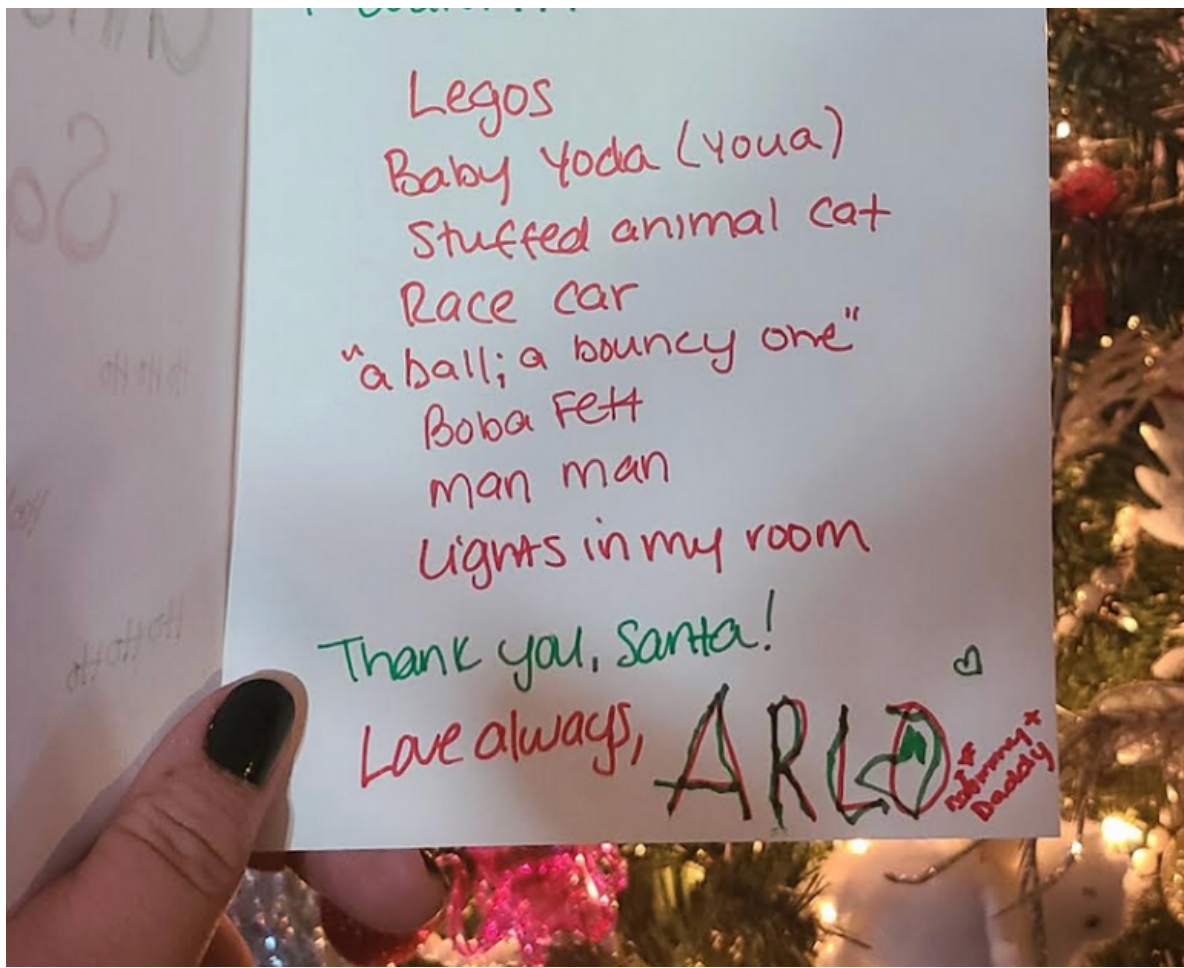 Legos
Baby Yoda (Youa)
Stuffed animal cat
Race car
"a ball; a bouncy one"
Boba Fett
man man
Lights in my room
Thank you, Santa!
Love always, ARLO
+ mommy +
Daddy
So
Ho Ho Ho
Ho Ho Ho